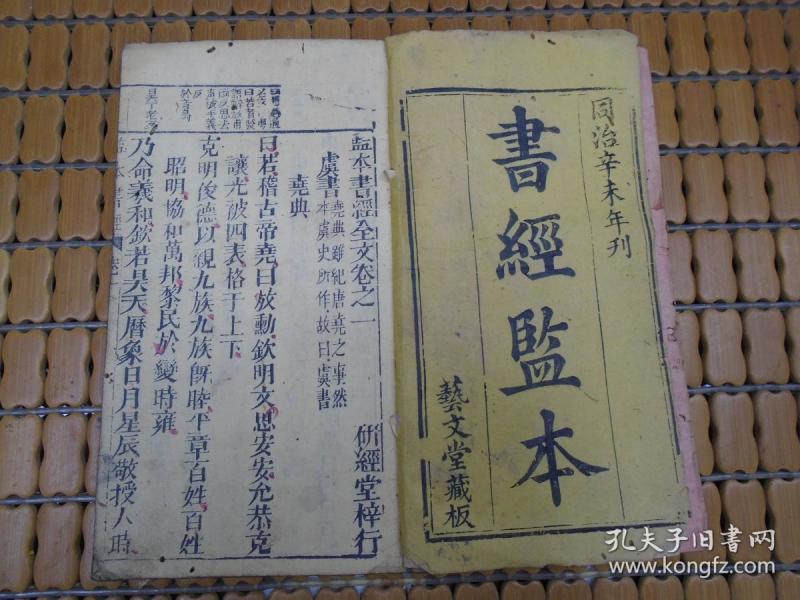 同治辛未年刊
書經監本
藝文堂藏板
監本書經全文卷之一
硏經堂梓行
虞書
堯典雖紀唐堯之事然
本虞史所作故曰虞書
堯典
曰若稽古帝堯曰放勳欽明文思安安允恭克
讓光被四表格于上下
克明俊德以親九族九族旣睦平章百姓百姓
昭明協和萬邦黎民於變時雍
乃命羲和欽若昊天曆象日月星辰敬授人時
孔夫子旧书网
www.kongfz.com